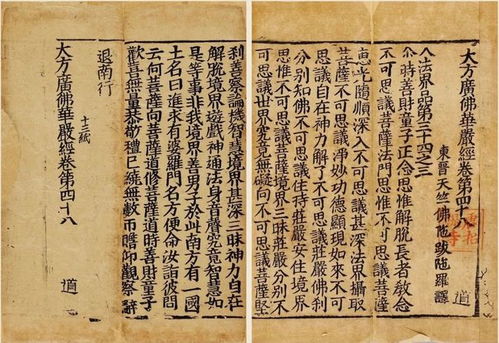 大方廣佛華嚴經卷第四十八 道
東晉天竺佛陁跋陁羅譯
入法界品第三十四之三
尒時善財童子正念思惟解脫長者教念
不可思議菩薩法門思惟不可思議菩薩
惠光隨順深入不可思議甚深法界攝取
菩薩不可思議淨妙功德顯現如來不可
思議自在神力解了不可思議莊嚴佛刹
分別知佛不可思議住持莊嚴安住境界
思惟不可思議菩薩境界三昧莊嚴分別不
可思議世界究竟無礙向不可思議菩薩堅
刹善察論機智慧境界甚深三昧神力自在
解脫境界遊戲神通法身音聲究竟智慧如
是等事非我境界善男子於此南方有一國
土名曰進求有婆羅門名方便命汝詣彼問
云何菩薩向菩薩道修菩薩道時善財童子
歡喜無量恭敬禮已繞無數帀瞻仰觀察辭
退南行
十三紙
大方廣佛華嚴經卷第四十八 道